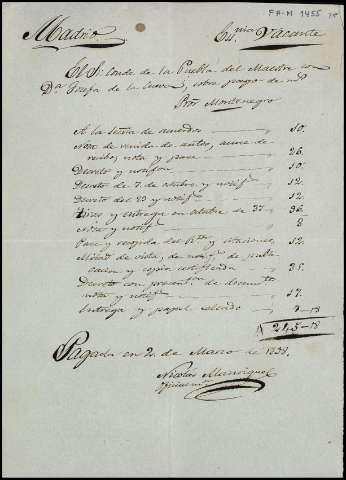 FA-M 1455
Madrid
Es.nia Vacante
El Sr. Conde de la Puebla del Maestre con
Da. Josefa de la Cueva, sobre pago de
Por Montenegro
A la de acuerdo 10.
Nota de venida de autos, acuse de
recibo, vista y pase 26.
Decreto y notifon 10.
Decreto de 7 de octubre y notifn. 12.
Decreto del 23 y notifn. 12.
y entrega en octubre de 37 36.
y notifn. 8
Pase y recogida del y citaciones 12.
Mitad de vista, de de publi-
cacion y copia certificada 35.
Decreto con presentn. de documto.
nota y notifn. 17.
Entrega y papel sellado 7-18
245-18
Pagada en 2 de Marzo de 1838.
Nicolas Manrique